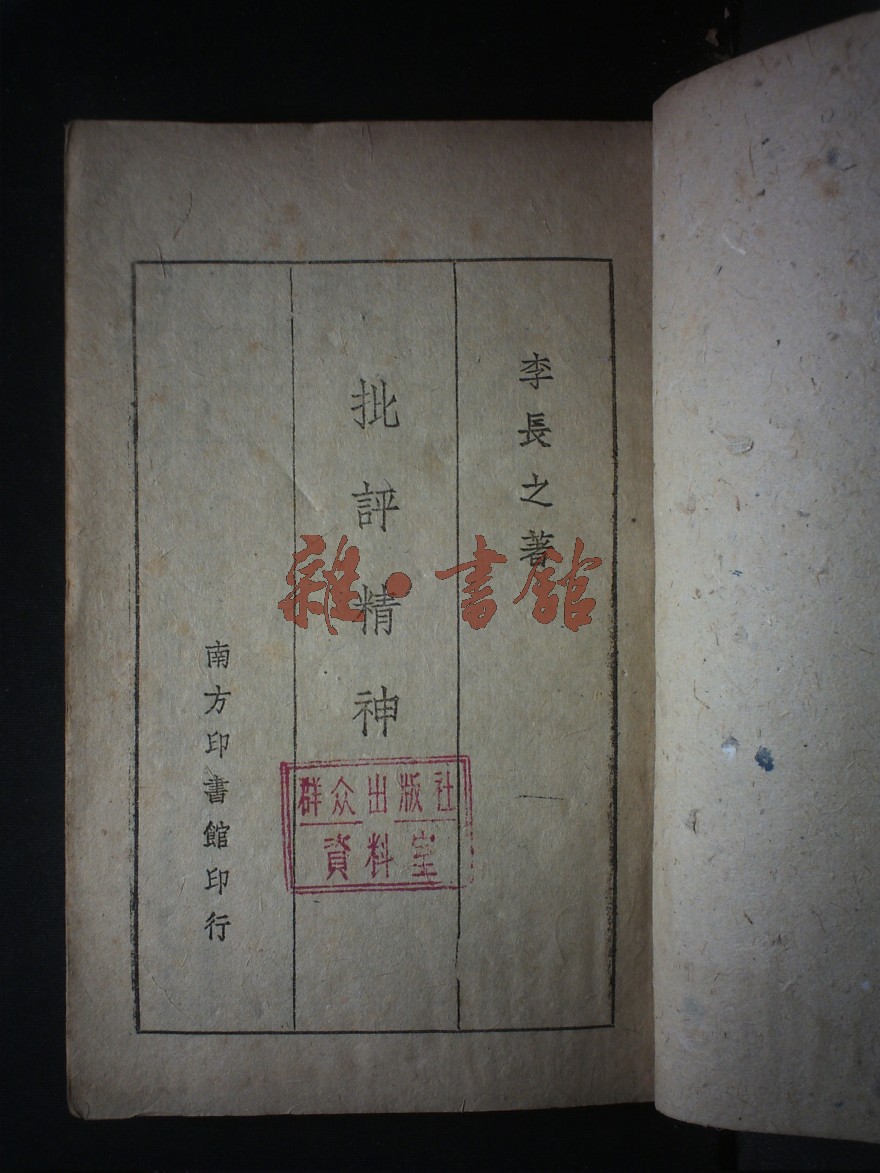 李長之著
批評精神
南方印書館印行
群众出版社
資料室
雜·書館